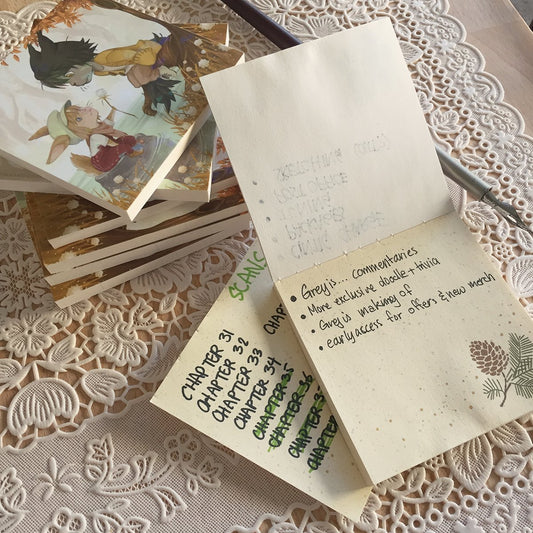 Grey is... commentaries
More exclusive doodle + trivia
Grey is making of
early access for offers & new merch
SCANC
CHAPTER 31
CHAPTER 32
CHAPTER 33
CHAPTER 34
CHAPTER 35
CHAPTER 36
CHAPTER 3
CHAPTER
CHAP